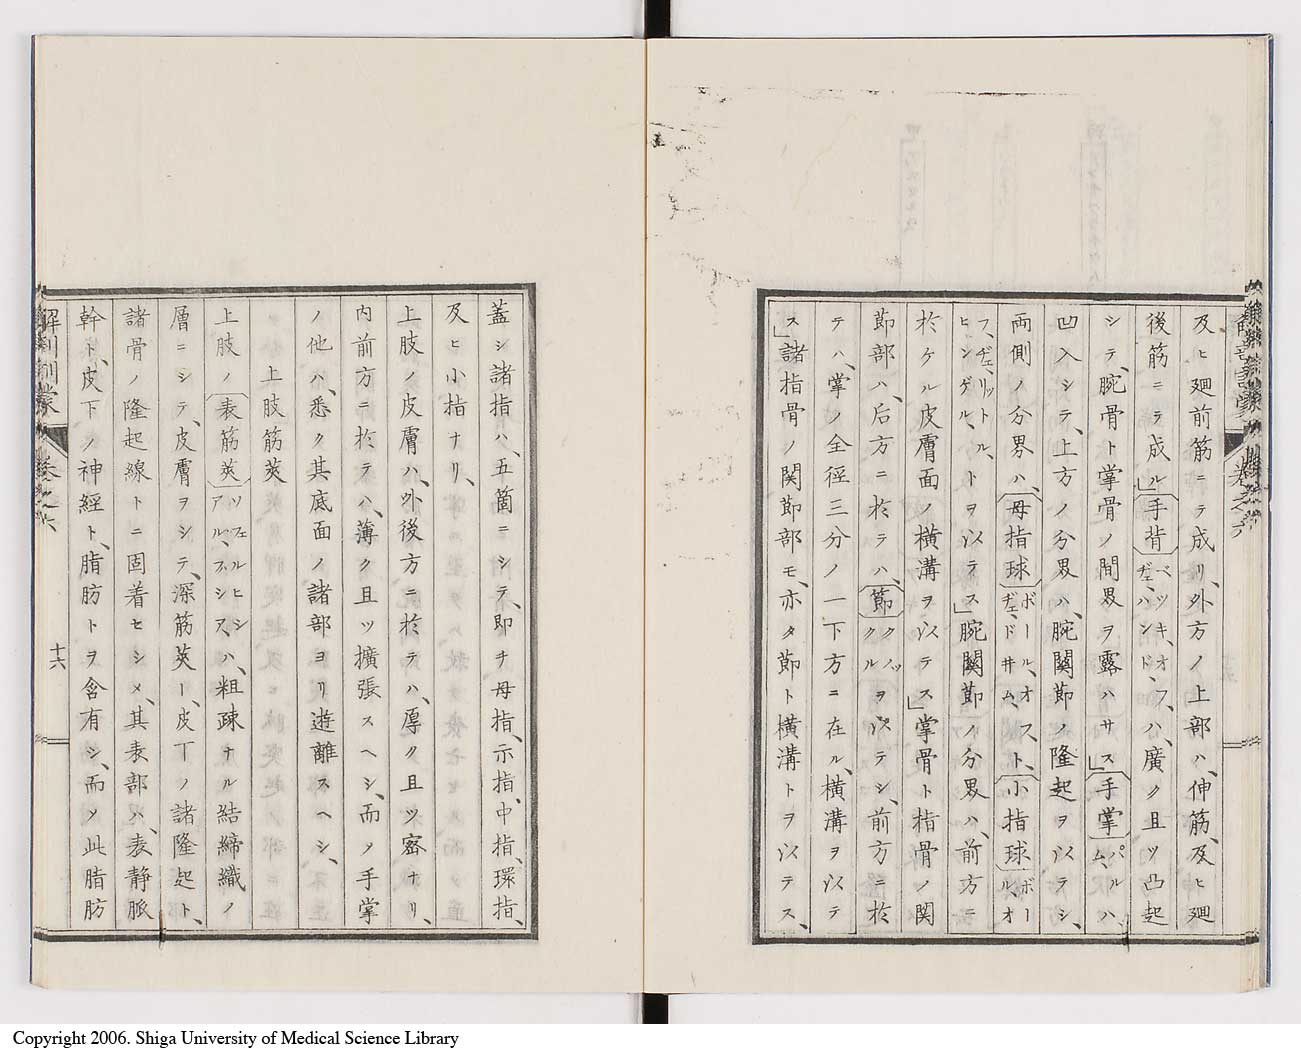 及ヒ廻前筋ニテ成リ、外方ノ上部ハ、伸筋、及ヒ廻
後筋ニテ成ル」手背ベツキ、オフ、ヂェ、ハンド、ハ、廣ク且ツ凸起
シテ、腕骨ト掌骨ノ間界ヲ露ハサス」手掌パルム、ハ、
凹入シテ、上方ノ分界ハ、腕關節ノ隆起ヲ以テシ、
両側ノ分界ハ、母指球ボール、オス、ヂェ、ドキム、ト、小指球ボール、オ
フ、ヂェ、リットル、ヒンゲル、トヲ以テス」腕關節ノ分界ハ、前方ニ
於ケル皮膚面ノ横溝ヲ以テス」掌骨ト指骨ノ関
節部ハ、后方ニ於テハ、節クノックルヲ以テシ、前方ニ於
テハ、掌ノ全径三分ノ一、下方ニ在ル、横溝ヲ以テ
ス」諸指骨ノ関節部モ、亦タ節ト横溝トヲ以テス、
蓋シ諸指ハ、五箇ニシテ、即チ母指、示指、中指、環指、
及ヒ小指ナリ、
上肢ノ皮膚ハ、外後方ニ於テハ、厚ク且ツ密ナリ、
内前方ニ於テハ、薄ク且ツ擴張スヘシ、而ノ手掌
ノ他ハ、悉ク其底面ノ諸部ヨリ遊離スヘシ、
上肢筋莢
上肢ノ表筋莢ソッフェルヒシアル、フシス、ハ、粗疎ナル結締織ノ
層ニシテ、皮膚ヲシテ、深筋莢ー、皮下ノ諸隆起ト、
諸骨ノ隆起線トニ固着セシメ、其表部ハ、表静脈
幹ト、皮下ノ神経ト、脂肪トヲ含有シ、而ソ此脂肪
解剖訓蒙
卷之六
十六